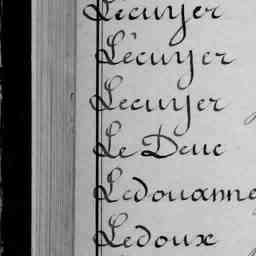 Lécuyer
Lécuyer
Lecuyer
Le Deuc
Ledouanne
Ledoux